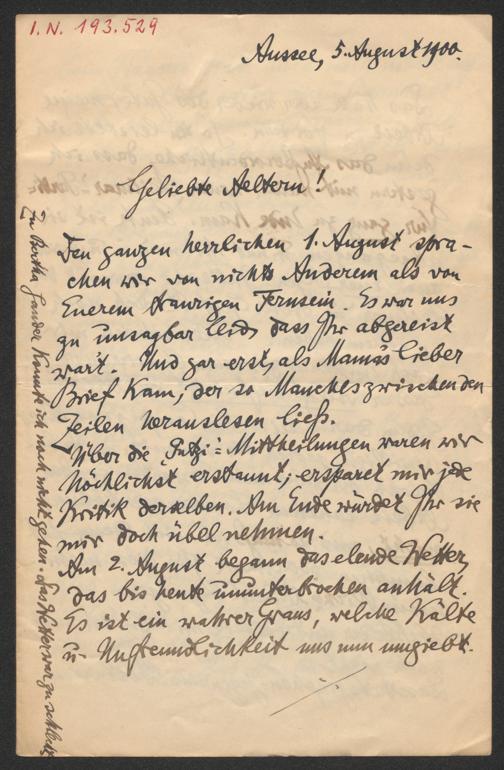 I.N. 193.529
Aussee, 5. August 1900.
Geliebte Aeltern!
Den ganzen herrlichen 1. August spra-
chen wir von nichts Anderem als von
Euerem traurigen Fernsein. Es war uns
zu unsagbar leid, dass Ihr abgereist
war't. Und gar erst, als Mama's lieber
Brief kam, der so Manches zwischen den
Zeilen herauslesen ließ.
Über die „Putzi"-Mittheilungen waren wir
höchlichst erstaunt; ersparet mir jede
Kritik derselben. Am Ende würdet Ihr sie
mir doch übel nehmen.
Am 2. August begann das elende Wetter,
das bis heute ununterbrochen anhält.
Es ist ein wahrer Graus, welche Kälte
u. Unfreundlichkeit uns nun umgiebt.
./.
Zu Bertha Zander konnte ich noch nicht gehen. Das Wetter war zu schlecht